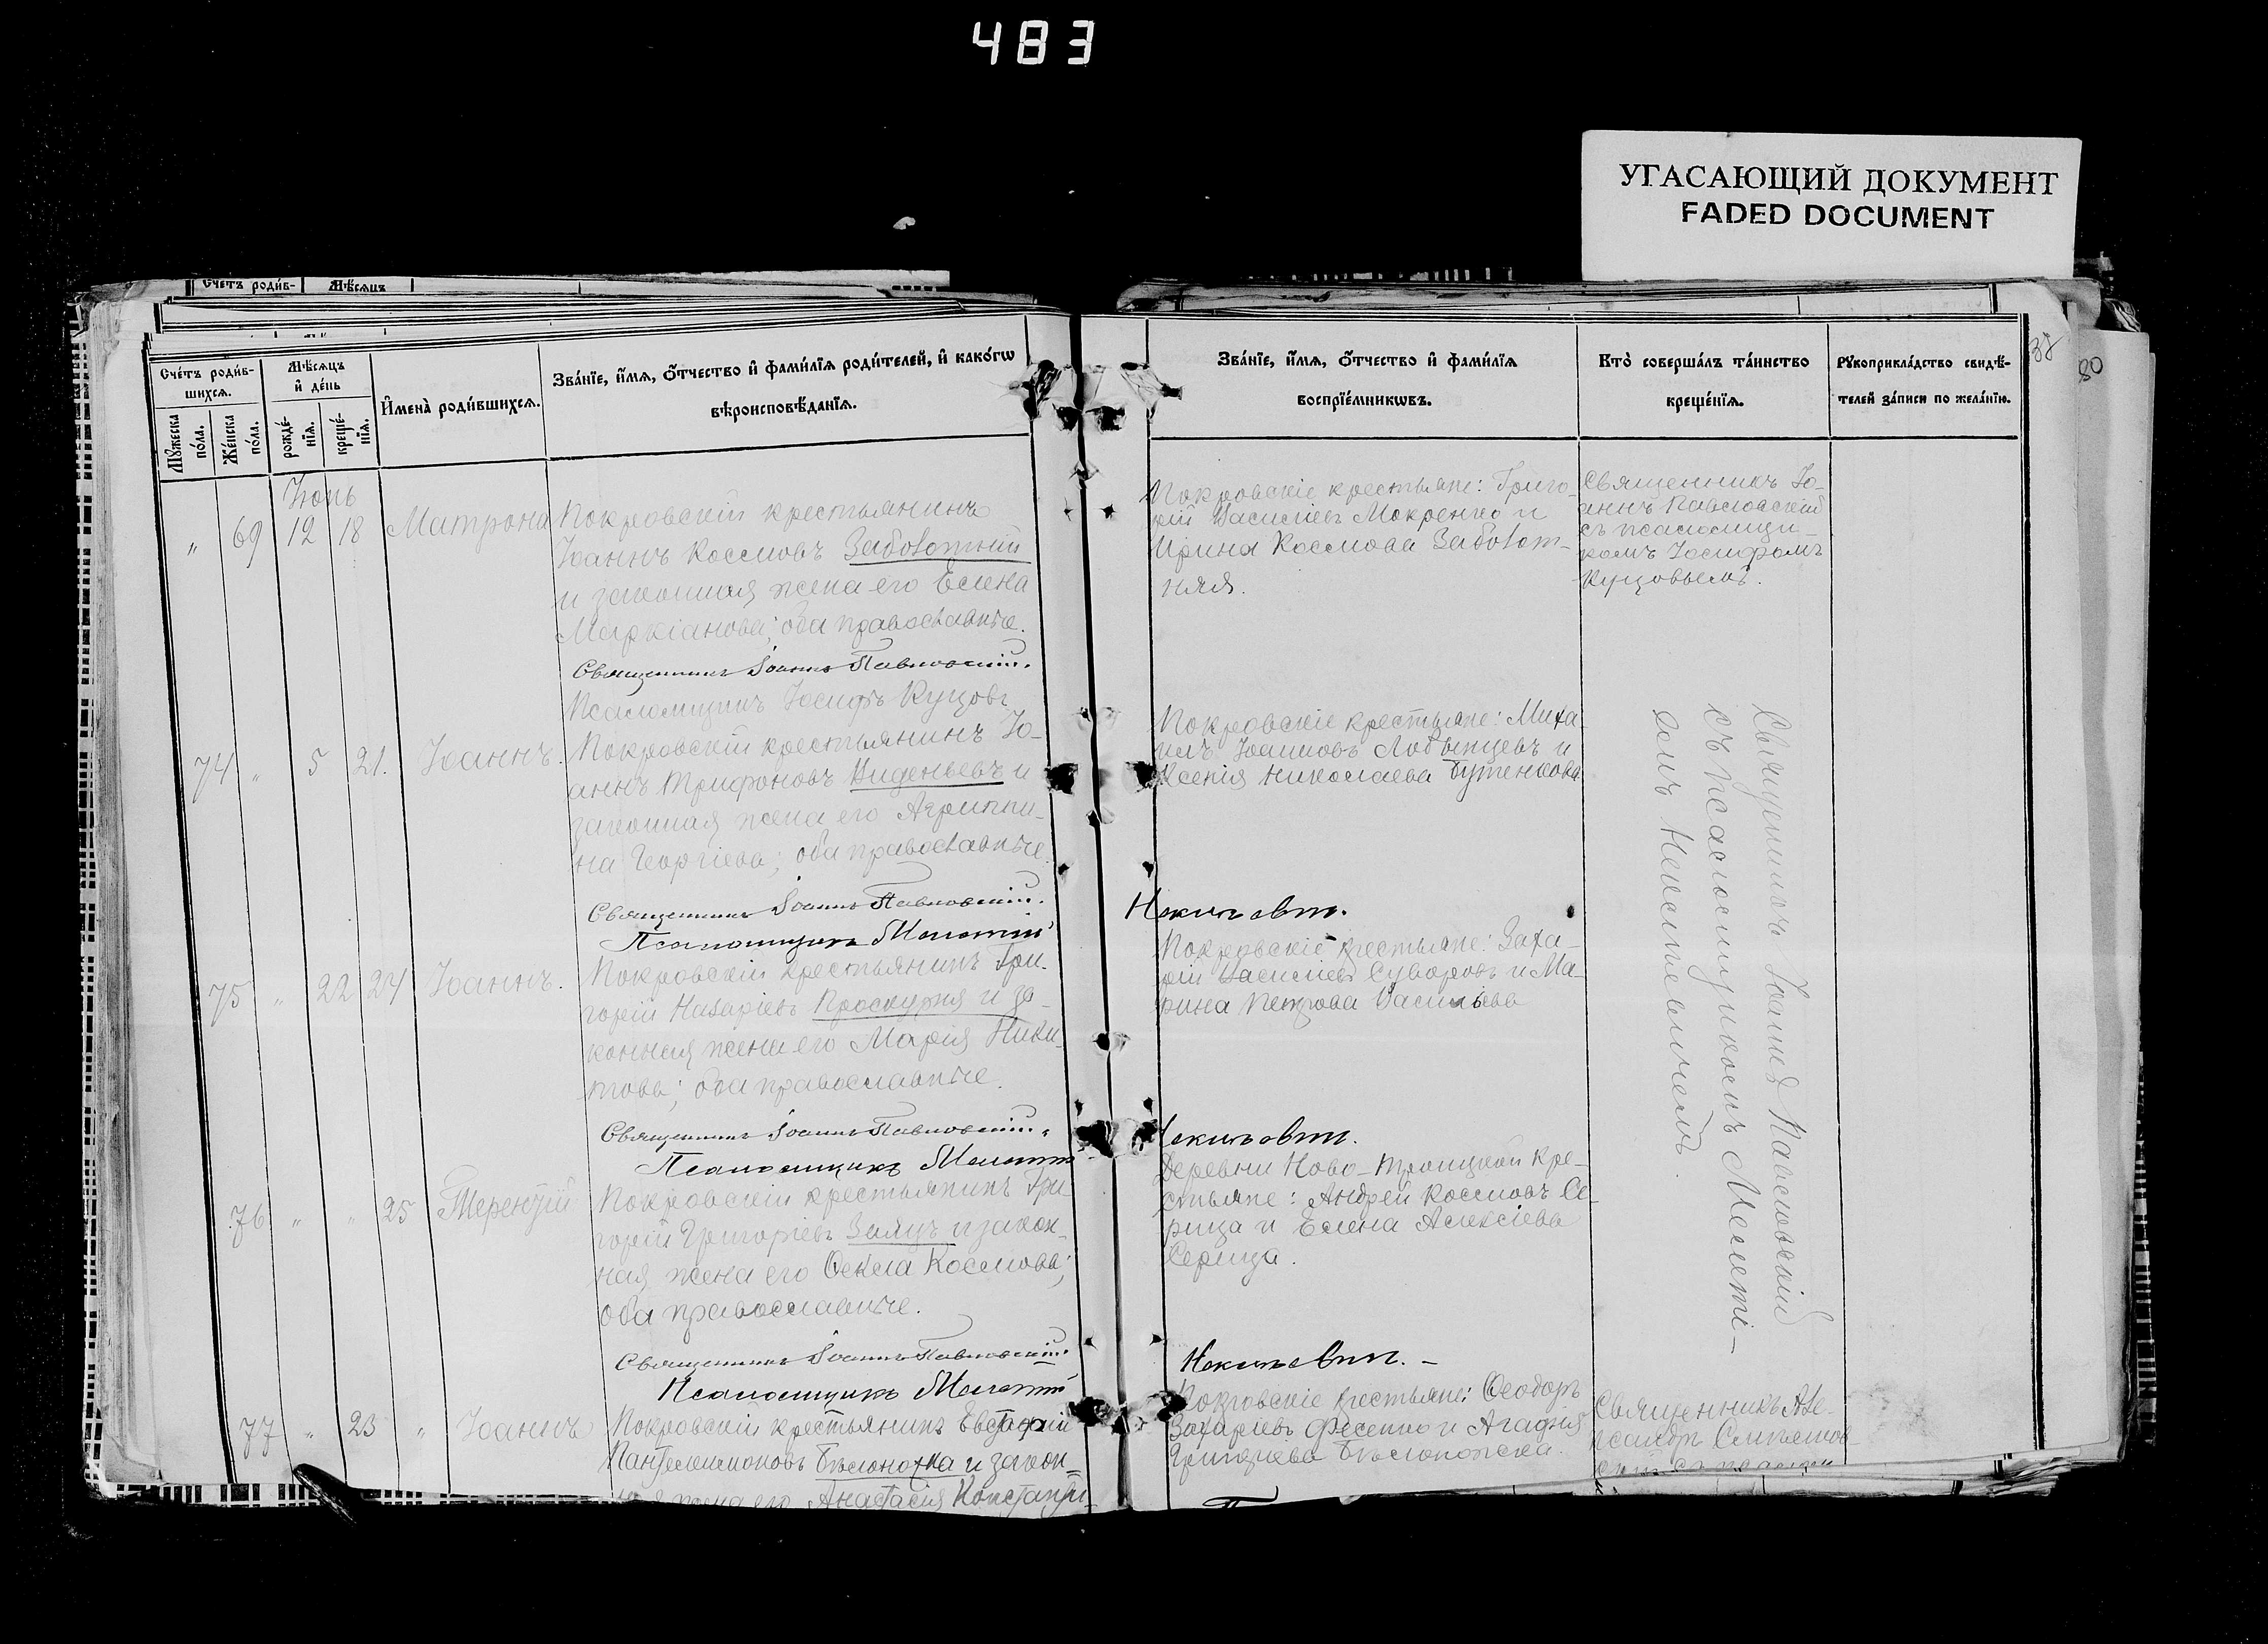 483
УГАСАЮЩИЙ ДОКУМЕНТ
FADED DOCUMENT
Счетъ родив-
Мѣсяцъ
Счетъ родив-
шихся.
Мужеска пола.
Женска пола.
Мѣсяцъ
и день
рожде-
нія.
креще-
нія.
Имена родившихся.
Званіе, имя, отчество и фамилія родителей, и какогѡ
вѣроисповѣданія.
Званіе, имя, отчество и фамилія
воспріемникѡвъ.
Кто совершалъ таинство
крещенія.
Рукоприкладство свидѣ-
телей записи по желанію.
37
80
Іюнь
" 69 12 18 Матрона
Покровскій крестьянинъ
Іоаннъ Космовъ Заболотній
и законная жена его Елена
Маркіанова; оба православные.
Священникъ Іоаннъ Павловскій.
Псаломщикъ Іосифъ Куцовъ
Покровскіе крестьяне: Григо-
рій Василіевъ Мокренко и
Ирина Космова Заболот-
няя.
Священникъ Іо-
аннъ Павловскій
съ псаломщи-
комъ Іосифомъ
Куцовымъ.
74 " 5 21. Іоаннъ.
Покровскій крестьянинъ Іо-
аннъ Трифоновъ Виденьевъ и
законная жена его Агриппи-
на Георгіева; оба православные.
Священникъ Іоаннъ Павловскій.
Псаломщикъ Мелетій
Покровскіе крестьяне: Миха-
илъ Іоанновъ Лобынцевъ и
Ксенія Николаева Бутенкова
Священникъ Іоаннъ Павловскій
съ псаломщикомъ Мелеті-
емъ
75 " 22 24 Іоаннъ.
Покровскій крестьянинъ Гри-
горій Назаріевъ Проскурня и за-
конная жена его Марія Ники-
това; оба православные.
Священникъ Іоаннъ Павловскій.
Псаломщикъ Мелетій
Покровскіе крестьяне: Заха-
рій Василіевъ Суворовъ и Ма-
рина Петрова Васильева
76 " " 25 Терентій
Покровскій крестьянинъ Гри-
горій Григоріевъ Заяцъ и закон-
ная жена его Ѳекла Космова;
оба православные.
Священникъ Іоаннъ Павловскій
Псаломщикъ Мелетій
Деревни Ново-Троицкой кре-
стьяне: Андрей Космовъ Се-
рица и Елена Алексіева
Серица.
77 " 23 " Іоаннъ
Покровскій крестьянинъ Евстафій
Пантелеимоновъ Бѣлоножка и закон-
ная жена его Анастасія Константи-
Покровскіе крестьяне: Ѳеодоръ
Захаріевъ Фесенко и Агафія
Григоріева Бѣлоножка.
Священникъ Але-
ксандръ